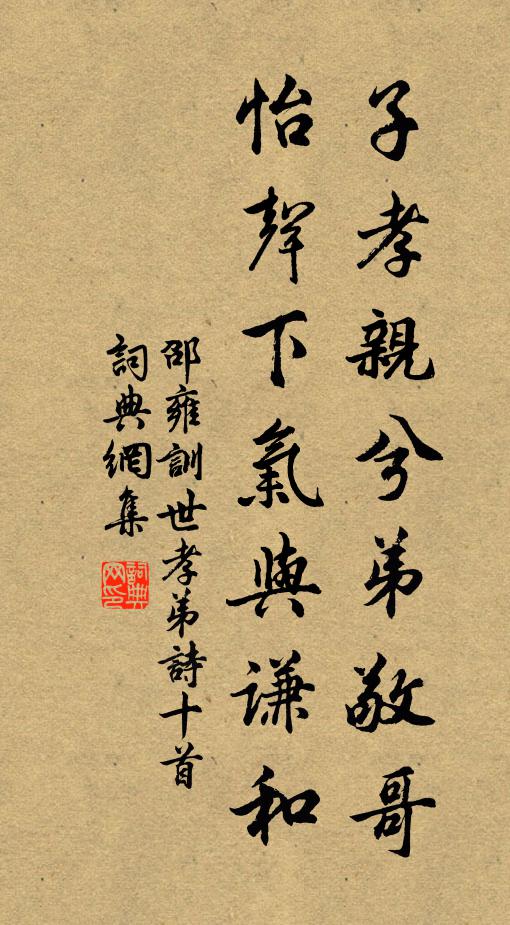 子孝親兮弟敬哥
怡聲下氣與謙和
邵雍訓世孝弟詩十首
詞典網集
詞典網印